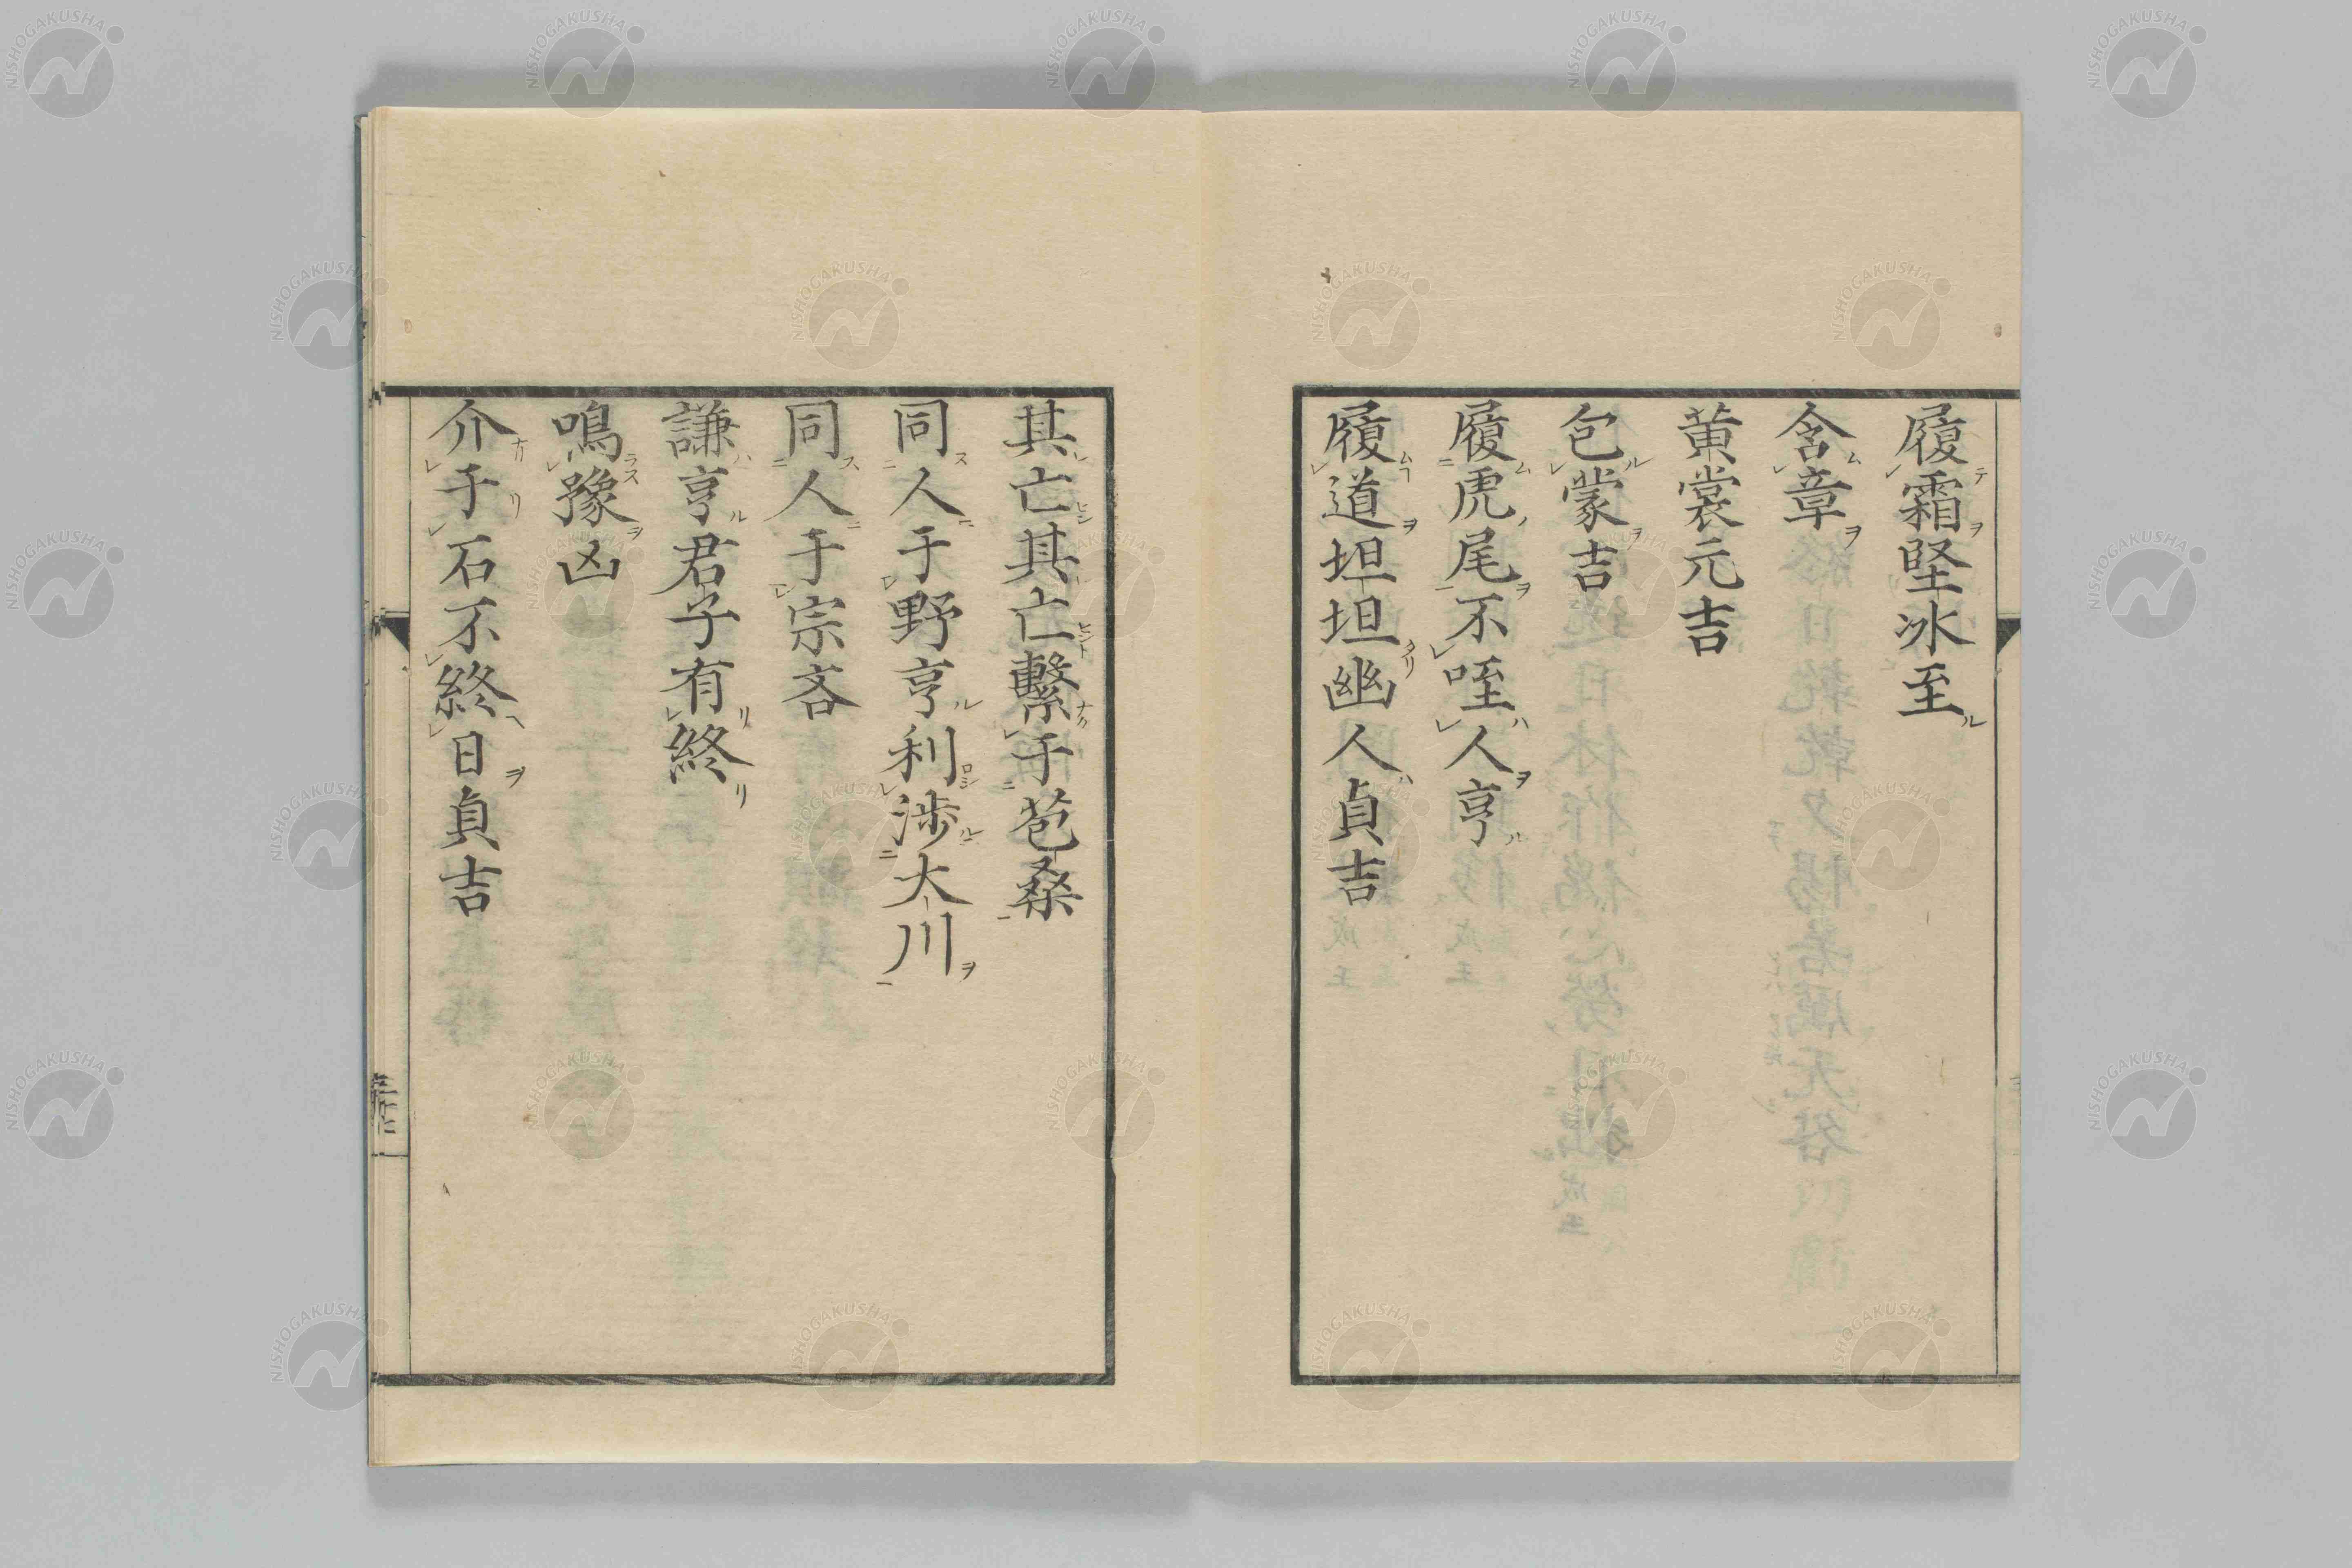 履霜堅冰至
含章
黄裳元吉
包蒙吉
履虎尾不咥人亨
履道坦坦幽人貞吉
其亡其亡繫于苞桑
同人于野亨利渉大川
同人于宗吝
謙亨君子有終
鳴豫凶
介于石不終日貞吉
NISHOGAKUSHA